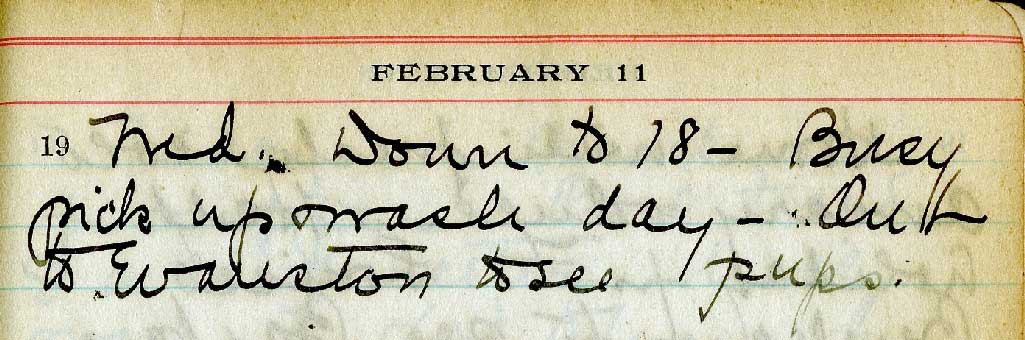 FEBRUARY 11
19 Wed. Down to 18 - Busy
pick up & wash day - Out
to Evanston to see pups.